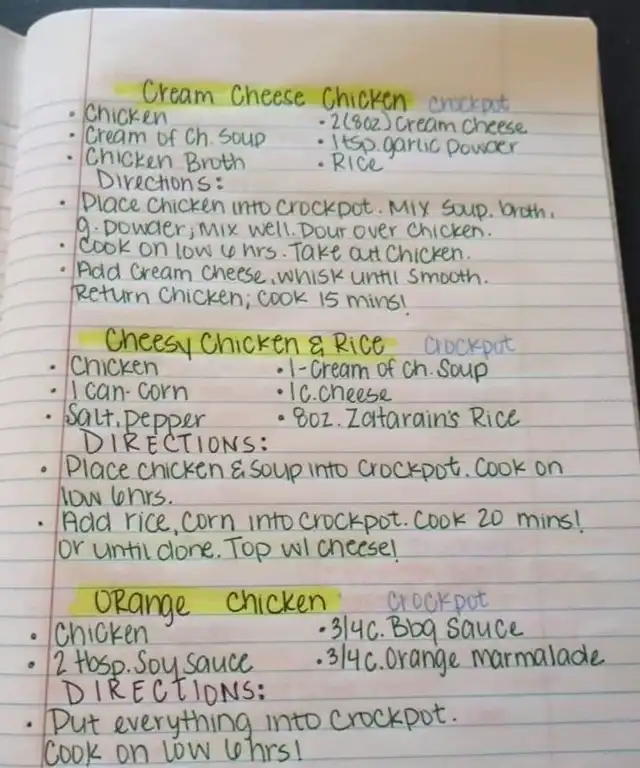 Cream Cheese Chicken crockpot
• Chicken • 2(8oz) Cream Cheese
• Cream of Ch. Soup • 1 tsp. garlic powder
• Chicken Broth • Rice
Directions:
• Place Chicken into Crockpot. Mix soup, broth,
g. powder; mix well. Pour over chicken.
• Cook on low 6 hrs. Take out chicken.
• Add cream cheese, whisk until smooth.
Return chicken; cook 15 mins!
Cheesy Chicken & Rice Crockpot
• Chicken • 1-Cream of Ch. Soup
• 1 can-corn • 1c. cheese
• Salt, pepper • 8oz. Zatarain's Rice
DIRECTIONS:
• Place chicken & soup into crockpot. Cook on
low 6hrs.
• Add rice, corn into crockpot. Cook 20 mins!
or until done. Top w/ cheese!
Orange Chicken Crockpot
• Chicken • 3/4c. Bbq sauce
• 2 tbsp. Soy sauce • 3/4c. Orange marmalade
DIRECTIONS:
• Put everything into crockpot.
Cook on low 6 hrs!